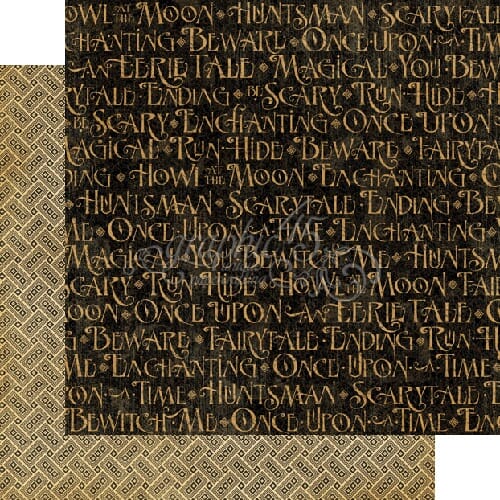 OWL AT THE MOON · HUNTSMAN · SCARYTAL
NCHANTING · BEWARE · ONCE · UPON · A · TIM
AN EERIE TALE · MAGICAL · YOU · BEW
RYTALE · ENDING · BE SCARY · RUN · HIDE · E
BE SCARY · ENCHANTING · ONCE UPON
AGICAL · RUN · HIDE · BEWARE · FAIRYTA
DING · HOWL AT THE MOON · ENCHANTING · O
HUNTSMAN · SCARYTALE · ENDING
ME · ONCE · UPON · A · TIME · ENCHANTING
MAGICAL · YOU · BEWITCH · ME · HUNTSM
CARY · RUN · HIDE · HOWL AT THE MOON · FAI
OON · ONCE UPON · AN EERIE TALE · E
G · BEWARE · FAIRYTALE · ENDING · RUN · H
ME · ENCHANTING · ONCE · UPON · A · TIM
A · TIME · HUNTSMAN · SCARYTALE
BEWITCH · ME · ONCE · UPON · A · TIME · EN
graphic 45